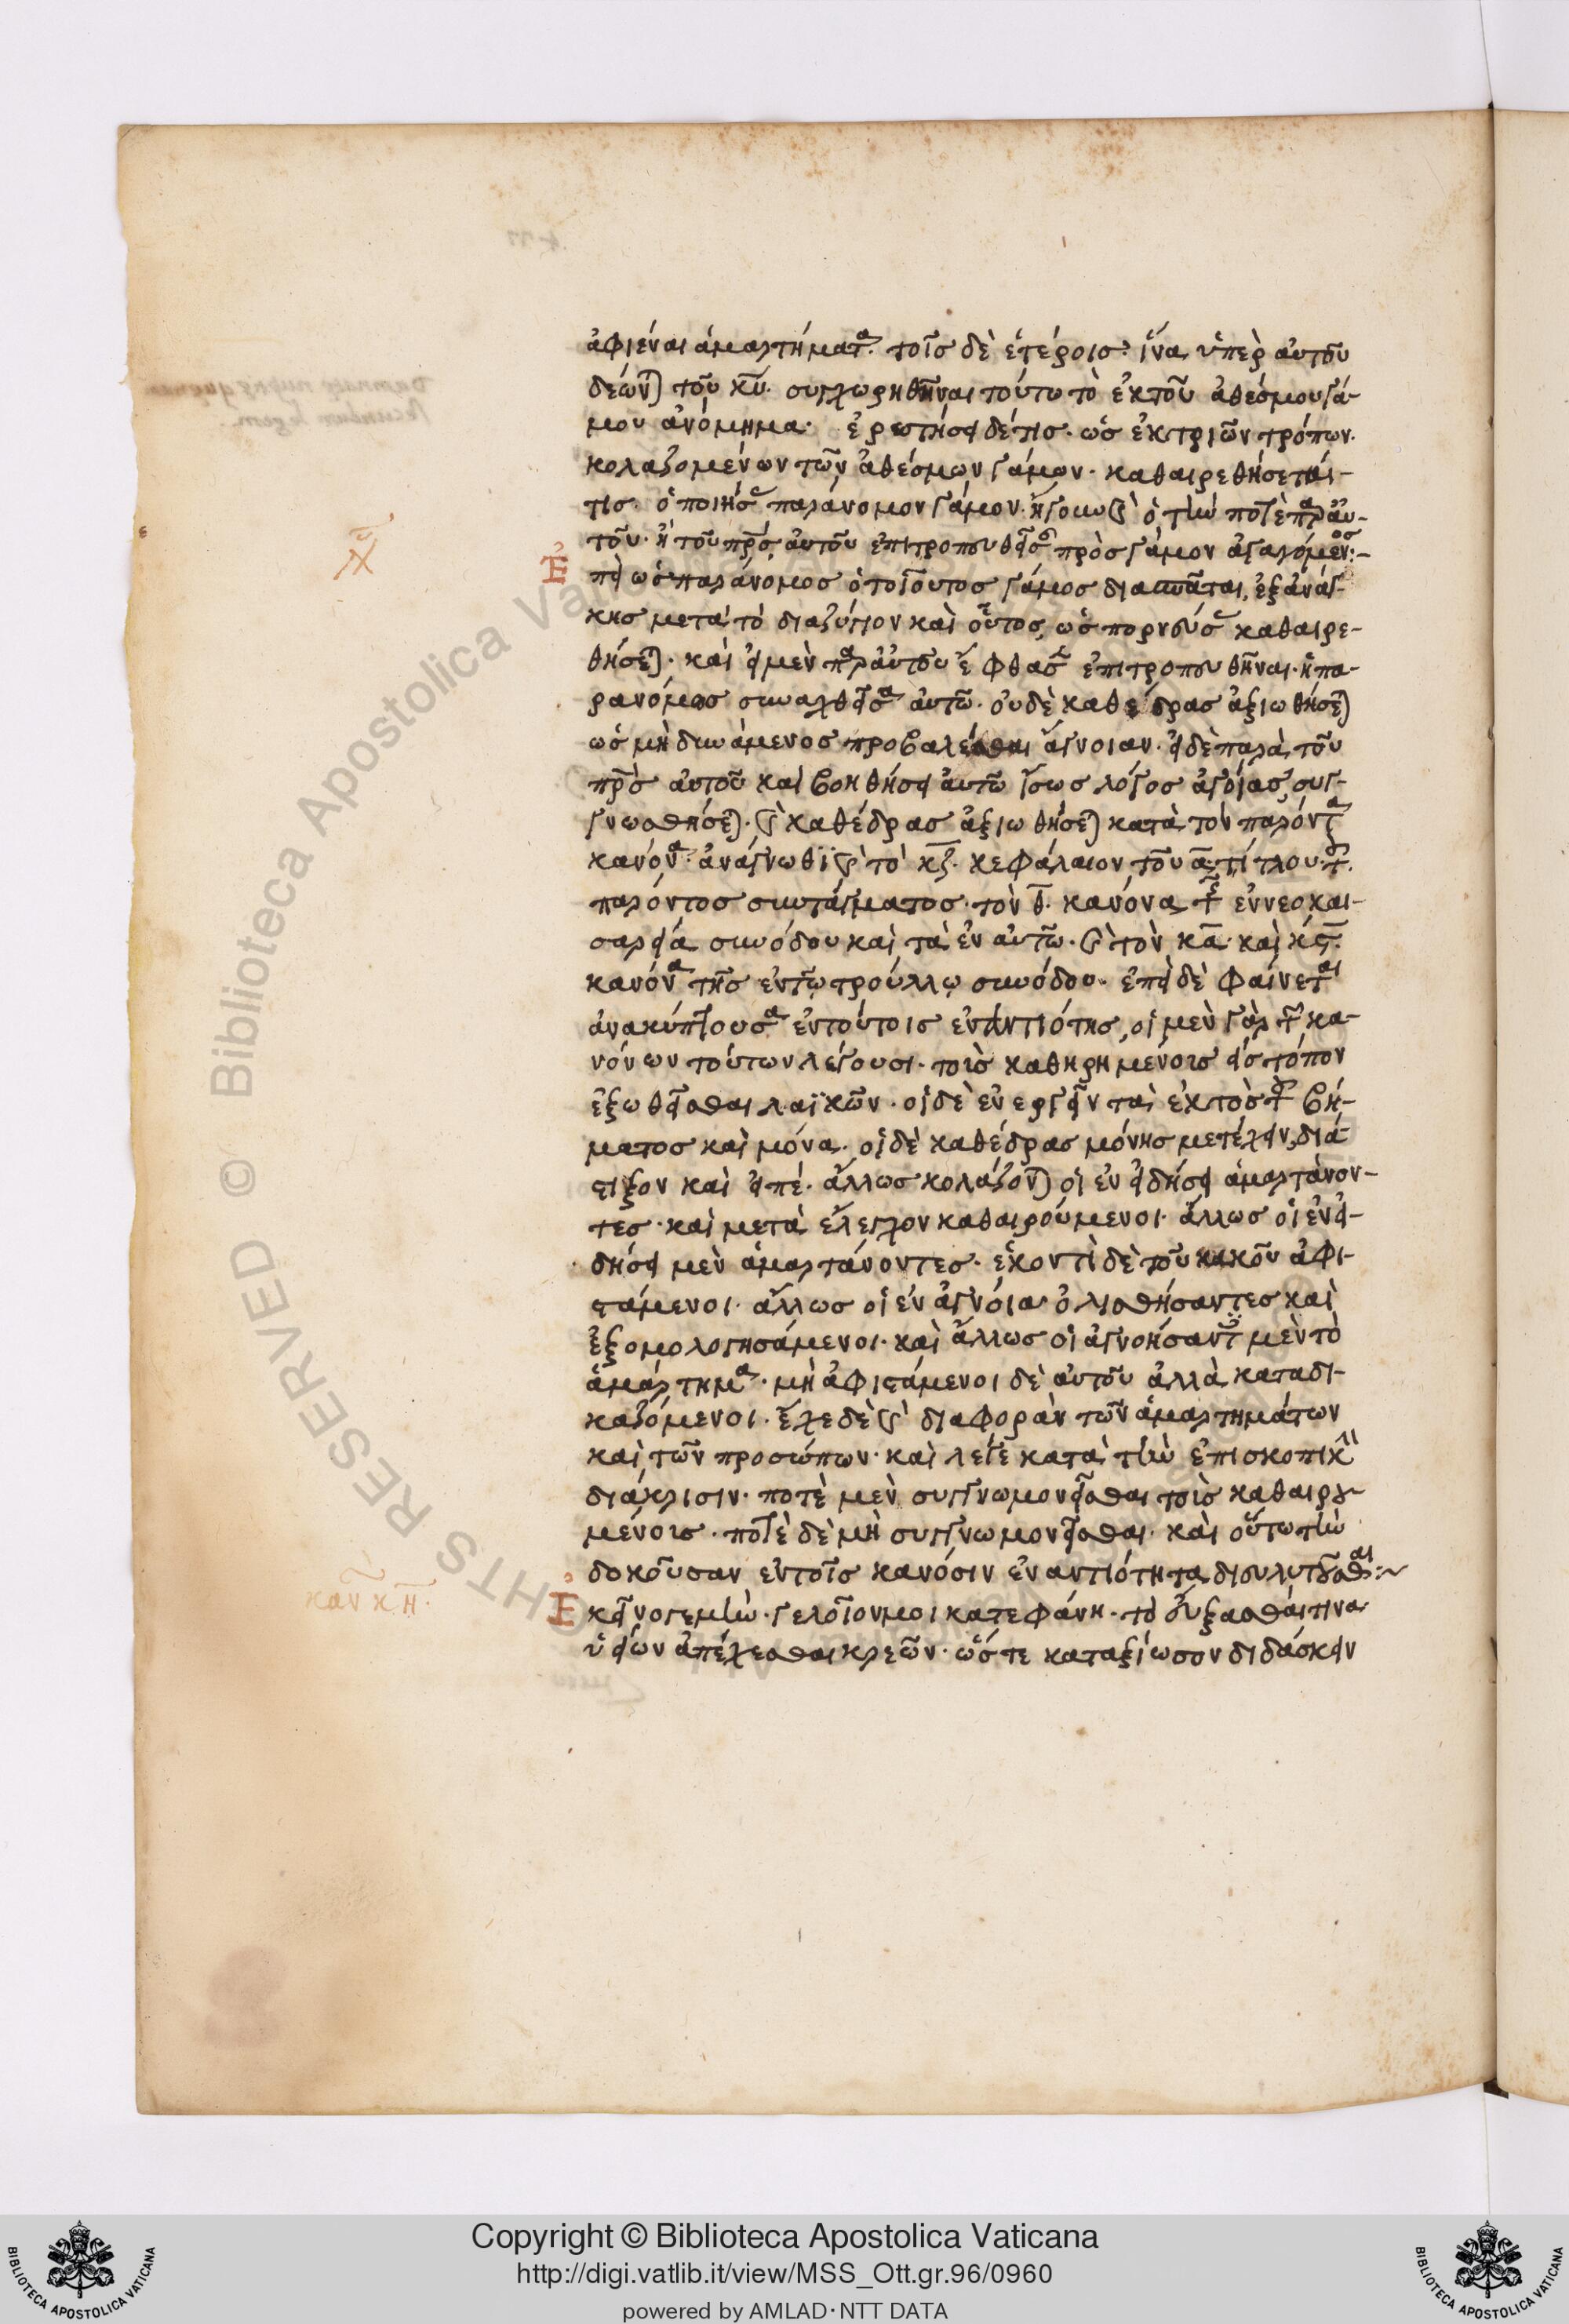 ἀφιέναι ἁμαρτήματα. τοῖς δὲ ἑτέροις. ἵνα ὑπὲρ αὐτοῦ
δέωνται τοῦ κυ. συγχωρηθῆναι τούτω τὸ ἐκ τοῦ ἀθέσμου γά-
μου ἀνόμημα. ἐρωτήσει δέ τις. ὡς ἐκ τριῶν τρόπων.
κολαζομένων τῶν ἀθέσμων γάμων. καθαιρεθήσεταί
τις. ὁ ποιήσας παράνομον γάμον. ἤγουν καὶ ὁ τὴν ποτὲ παρ' αὐ-
τοῦ. ἢ τοῦ πρς αὐτοῦ ἐπιτροπευθεῖσαν πρὸς γάμον ἀγαγόμενος:-
Ἐπεὶ ὡς παράνομος ὁ τοιοῦτος γάμος διασπᾶται, ἐξ ἀνάγ-
κης μετὰ τὸ διαζύγιον καὶ οὗτος, ὡς πορνεύσας καθαιρε-
θήσεται. καὶ εἰ μὲν παρ' αὐτοῦ ἔφθασεν ἐπιτροπευθῆναι. ἡ πα-
ρανόμως συναχθεῖσα αὐτῶ. οὐδὲ καθέδρας ἀξιωθήσεται
ὡς μὴ δυνάμενος προβαλέσθαι ἄγνοιαν. εἰ δὲ παρὰ τοῦ
πρς αὐτοῦ καὶ βοηθήσει αὐτῶ ἴσως λόγος ἀγνοίας, συγ-
γνωσθήσεται. καὶ καθέδρας ἀξιωθήσεται κατὰ τὸν παρόντα
κανόνα. ἀνάγνωθι καὶ τὸ κζ. κεφάλαιον τοῦ α τίτλου τοῦ
παρόντος συντάγματος. τὸν θ. κανόνα τῆς ἐν νεοκαι-
σαρεία συνόδου καὶ τὰ ἐν αὐτῶ. καὶ τὸν κα καὶ κς.
κανόνα τῆς ἐν τῷ τρούλλῳ συνόδου. ἐπεὶ δὲ φαίνεται
ἀνακύπτουσα ἐν τούτοις ἐναντιότης, οἱ μὲν γὰρ τῶν κα-
νόνων τούτων λέγουσι. τοὺς καθηρημένους εἰς τόπον
ἐξωθεῖσθαι λαϊκῶν. οἱ δὲ ἐνεργεῖν τὰ ἐκτὸς τοῦ βή-
ματος καὶ μόνα. οἱ δὲ καθέδρας μόνης μετέχειν, διά-
στιξον καὶ εἰπέ. ἄλλως κολάζονται οἱ ἐν εἰδήσει ἁμαρτάνον-
τες. καὶ μετὰ ἔλεγχον καθαιρούμενοι. ἄλλως οἱ ἐν εἰ-
δήσει μὲν ἁμαρτάνοντες. ἑκοντὶ δὲ τοῦ κακοῦ ἀφι-
στάμενοι. ἄλλως οἱ ἐν ἀγνοία ὀλισθήσαντες καὶ
ἐξομολογησάμενοι. καὶ ἄλλως οἱ ἀγνοήσαντες μὲν τὸ
ἁμάρτημα. μὴ ἀφιστάμενοι δὲ αὐτοῦ ἀλλὰ καταδι-
καζόμενοι. ἔχε δὲ καὶ διαφορὰν τῶν ἁμαρτημάτων
καὶ τῶν προσώπων. καὶ λέγε κατὰ τὴν ἐπισκοπικὴν
διάκρισιν. ποτὲ μὲν συγγνωμονεῖσθαι τοὺς καθαιρου-
μένους. ποτὲ δὲ μὴ συγγνωμονεῖσθαι. καὶ οὕτω τὴν
δοκοῦσαν ἐν τοῖς κανόσιν ἐναντιότητα διευλυτοῦσθαι:~
καν κη.
Ἐκεῖνο γε μὴν. γελοῖόν μοι κατεφάνη. τὸ εὔξασθαί τινα
ὑείων ἀπέχεσθαι κρεῶν. ὥστε καταξίωσον διδάσκειν
Copyright © Biblioteca Apostolica Vaticana
http://digi.vatlib.it/view/MSS_Ott.gr.96/0960
powered by AMLAD·NTT DATA
BIBLIOTECA APOSTOLICA VATICANA
BIBLIOTECA APOSTOLICA VATICANA